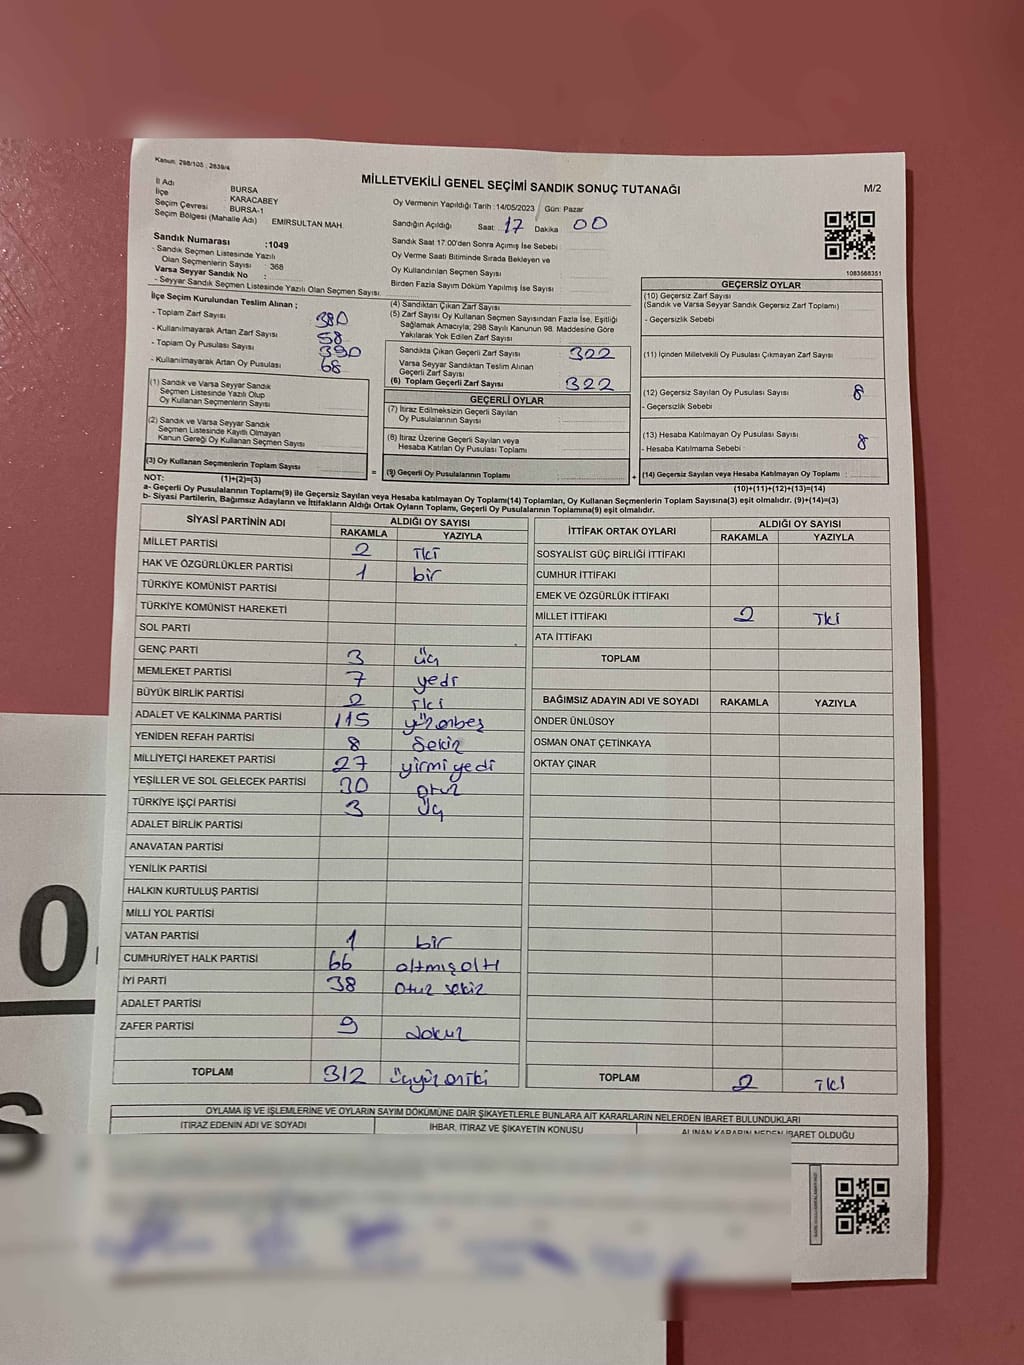 Kanun: 298/105 ; 2839/4
MİLLETVEKİLİ GENEL SEÇİMİ SANDIK SONUÇ TUTANAĞI
M/2
İl Adı : BURSA
İlçe : KARACABEY
Seçim Çevresi : BURSA-1
Seçim Bölgesi (Mahalle Adı) : EMIRSULTAN MAH.
Sandık Numarası :1049
- Sandık Seçmen Listesinde Yazılı
Olan Seçmenlerin Sayısı : 368
Varsa Seyyar Sandık No :
- Seyyar Sandık Seçmen Listesinde Yazılı Olan Seçmen Sayısı:
İlçe Seçim Kurulundan Teslim Alınan ;
- Toplam Zarf Sayısı : 380
- Kullanılmayarak Artan Zarf Sayısı : 58
- Toplam Oy Pusulası Sayısı : 390
- Kullanılmayarak Artan Oy Pusulası : 68
(1) Sandık ve Varsa Seyyar Sandık
Seçmen Listesinde Yazılı Olup
Oy Kullanan Seçmenlerin Sayısı
(2) Sandık ve Varsa Seyyar Sandık
Seçmen Listesinde Kayıtlı Olmayan
Kanun Gereği Oy Kullanan Seçmen Sayısı
(3) Oy Kullanan Seçmenlerin Toplam Sayısı
(1)+(2)=(3)
Oy Vermenin Yapıldığı Tarih :14/05/2023 Gün: Pazar
Sandığın Açıldığı Saat: 17 Dakika 00
Sandık Saat 17:00'den Sonra Açımış İse Sebebi :
Oy Verme Saati Bitiminde Sırada Bekleyen ve
Oy Kullandırılan Seçmen Sayısı :
Birden Fazla Sayım Döküm Yapılmış İse Sayısı :
(4) Sandıktan Çıkan Zarf Sayısı :
(5) Zarf Sayısı Oy Kullanan Seçmen Sayısından Fazla İse, Eşitliği
Sağlamak Amacıyla; 298 Sayılı Kanunun 98. Maddesine Göre
Yakılarak Yok Edilen Zarf Sayısı :
Sandıkta Çıkan Geçerli Zarf Sayısı : 322
Varsa Seyyar Sandıktan Teslim Alınan
Geçerli Zarf Sayısı :
(6) Toplam Geçerli Zarf Sayısı : 322
GEÇERLİ OYLAR
(7) İtiraz Edilmeksizin Geçerli Sayılan
Oy Pusulalarının Sayısı :
(8) İtiraz Üzerine Geçerli Sayılan veya
Hesaba Katılan Oy Pusulası Toplamı :
= (9) Geçerli Oy Pusulalarının Toplamı :
1083568351
GEÇERSİZ OYLAR
(10) Geçersiz Zarf Sayısı
(Sandık ve Varsa Seyyar Sandık Geçersiz Zarf Toplamı) :
- Geçersizlik Sebebi :
(11) İçinden Milletvekili Oy Pusulası Çıkmayan Zarf Sayısı :
(12) Geçersiz Sayılan Oy Pusulası Sayısı : 8
- Geçersizlik Sebebi :
(13) Hesaba Katılmayan Oy Pusulası Sayısı : 8
- Hesaba Katılmama Sebebi :
+ (14) Geçersiz Sayılan veya Hesaba Katılmayan Oy Toplamı :
(10)+(11)+(12)+(13)=(14)
NOT:
a- Geçerli Oy Pusulalarının Toplamı(9) ile Geçersiz Sayılan veya Hesaba katılmayan Oy Toplamı(14) Toplamları, Oy Kullanan Seçmenlerin Toplam Sayısına(3) eşit olmalıdır. (9)+(14)=(3)
b- Siyasi Partilerin, Bağımsız Adayların ve İttifakların Aldığı Ortak Oyların Toplamı, Geçerli Oy Pusulalarının Toplamına(9) eşit olmalıdır.
SİYASİ PARTİNİN ADI ALDIĞI OY SAYISI
RAKAMLA YAZIYLA
MİLLET PARTİSİ 2 iki
HAK VE ÖZGÜRLÜKLER PARTİSİ 1 bir
TÜRKİYE KOMÜNİST PARTİSİ
TÜRKİYE KOMÜNİST HAREKETİ
SOL PARTİ
GENÇ PARTİ 3 üç
MEMLEKET PARTİSİ 7 yedi
BÜYÜK BİRLİK PARTİSİ 2 iki
ADALET VE KALKINMA PARTİSİ 115 yüzonbeş
YENİDEN REFAH PARTİSİ 8 Sekiz
MİLLİYETÇİ HAREKET PARTİSİ 27 yirmi yedi
YEŞİLLER VE SOL GELECEK PARTİSİ 30 otuz
TÜRKİYE İŞÇİ PARTİSİ 3 üç
ADALET BİRLİK PARTİSİ
ANAVATAN PARTİSİ
YENİLİK PARTİSİ
HALKIN KURTULUŞ PARTİSİ
MİLLİ YOL PARTİSİ
VATAN PARTİSİ 1 bir
CUMHURİYET HALK PARTİSİ 66 altmış altı
İYİ PARTİ 38 Otuz sekiz
ADALET PARTİSİ
ZAFER PARTİSİ 9 dokuz
TOPLAM 312 üçyüz oniki
İTTİFAK ORTAK OYLARI ALDIĞI OY SAYISI
RAKAMLA YAZIYLA
SOSYALİST GÜÇ BİRLİĞİ İTTİFAKI
CUMHUR İTTİFAKI
EMEK VE ÖZGÜRLÜK İTTİFAKI
MİLLET İTTİFAKI 2 iki
ATA İTTİFAKI
TOPLAM
BAĞIMSIZ ADAYIN ADI VE SOYADI RAKAMLA YAZIYLA
ÖNDER ÜNLÜSOY
OSMAN ONAT ÇETİNKAYA
OKTAY ÇINAR
TOPLAM 2 iki
OYLAMA İŞ VE İŞLEMLERİNE VE OYLARIN SAYIM DÖKÜMÜNE DAİR ŞİKAYETLERLE BUNLARA AİT KARARLARIN NELERDEN İBARET BULUNDUKLARI
İTİRAZ EDENİN ADI VE SOYADI İHBAR, İTİRAZ VE ŞİKAYETİN KONUSU ALINAN KARARIN NEDEN İBARET OLDUĞU
0
S